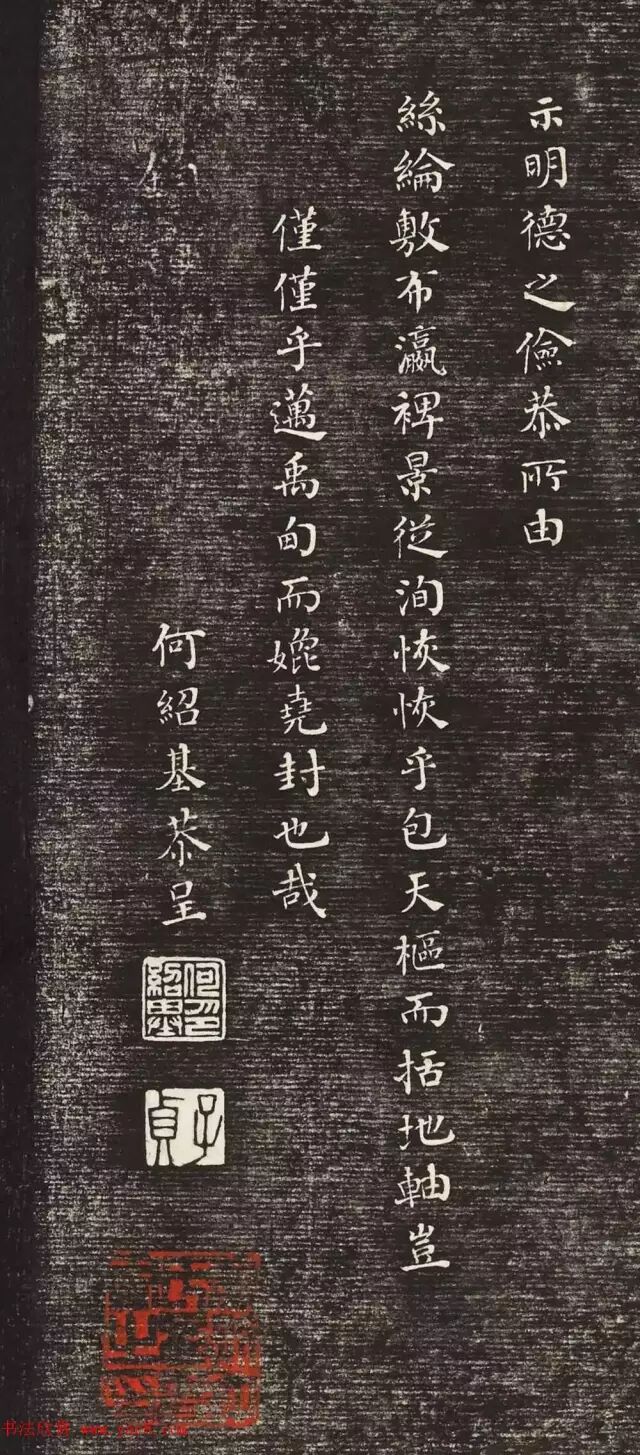 示明德之儉恭所由
絲綸敷布瀛裨景從洵恢恢乎包天樞而括地軸豈
僅僅乎邁禹甸而媲堯封也哉
何紹基恭呈
何紹基印
子貞
书法欣赏